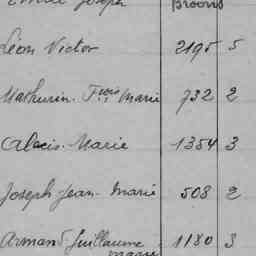 Joseph Broons
Léon Victor 2195 5
Mathurin Fçois Marie 732 2
Alexis Marie 1354 3
Joseph Jean Marie 508 2
Armand Guillaume 1180 3
Marie